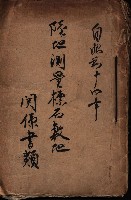 自昭和十六年
陸地測量標石敷地
関係書類